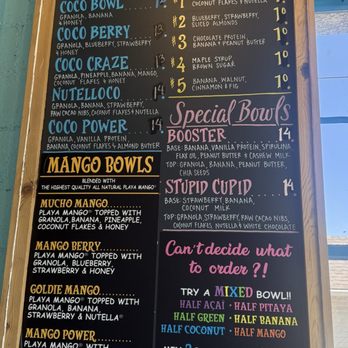 COCO BOWL
GRANOLA, BANANA
& HONEY
COCO BERRY
GRANOLA, BLUEBERRY, STRAWBERRY,
& HONEY
COCO CRAZE
GRANOLA, PINEAPPLE, BANANA, MANGO,
COCONUT FLAKES & HONEY
NUTELLOCO
GRANOLA, BANANA, STRAWBERRY,
RAW CACAO NIBS, COCONUT FLAKES & NUTELLA
COCO POWER 13
GRANOLA, VANILLA PROTEIN
BANANA, COCONUT FLAKES & ALMOND BUTTER
MANGO BOWLS
BLENDED WITH
THE HIGHEST QUALITY ALL NATURAL PLAYA MANGO
MUCHO MANGO
PLAYA MANGO® TOPPED WITH
GRANOLA, BANANA, PINEAPPLE,
COCONUT FLAKES & HONEY
MANGO BERRY
PLAYA MANGO® TOPPED WITH
GRANOLA, BLUEBERRY
STRAWBERRY & HONEY
GOLDIE MANGO
PLAYA MANGO® TOPPED WITH
GRANOLA, BANANA,
STRAWBERRY & NUTELLA®
MANGO POWER
PLAYA MANGO® WITH
#1
COCONUT FLAKES & NUTELLA
#2 BLUEBERRY, STRAWBERRY,
SLICED ALMONDS
#3 CHOCOLATE PROTEIN,
BANANA & PEANUT BUTTER
#4 MAPLE SYRUP
BROWN SUGAR
#5 BANANA, WALNUT,
CINNAMON & FIG
Special Bowls
BOOSTER 14
BASE: BANANA, VANILLA PROTEIN, SPIRULINA
FLAX OIL, PEANUT BUTTER & CASHEW MILK
TOP: GRANOLA, BANANA, PEANUT BUTTER,
CHIA SEEDS
STUPID CUPID 14
BASE: STRAWBERRY, BANANA,
COCONUT MILK
TOP: GRANOLA, STRAWBERRY, RAW CACAO NIBS,
COCONUT FLAKES, NUTELLA & WHITE CHOCOLATE
Can't decide what
to order?!
TRY A MIXED BOWL!!
HALF AÇAÍ • HALF PITAYA
HALF GREEN • HALF BANANA
HALF COCONUT • HALF MANGO